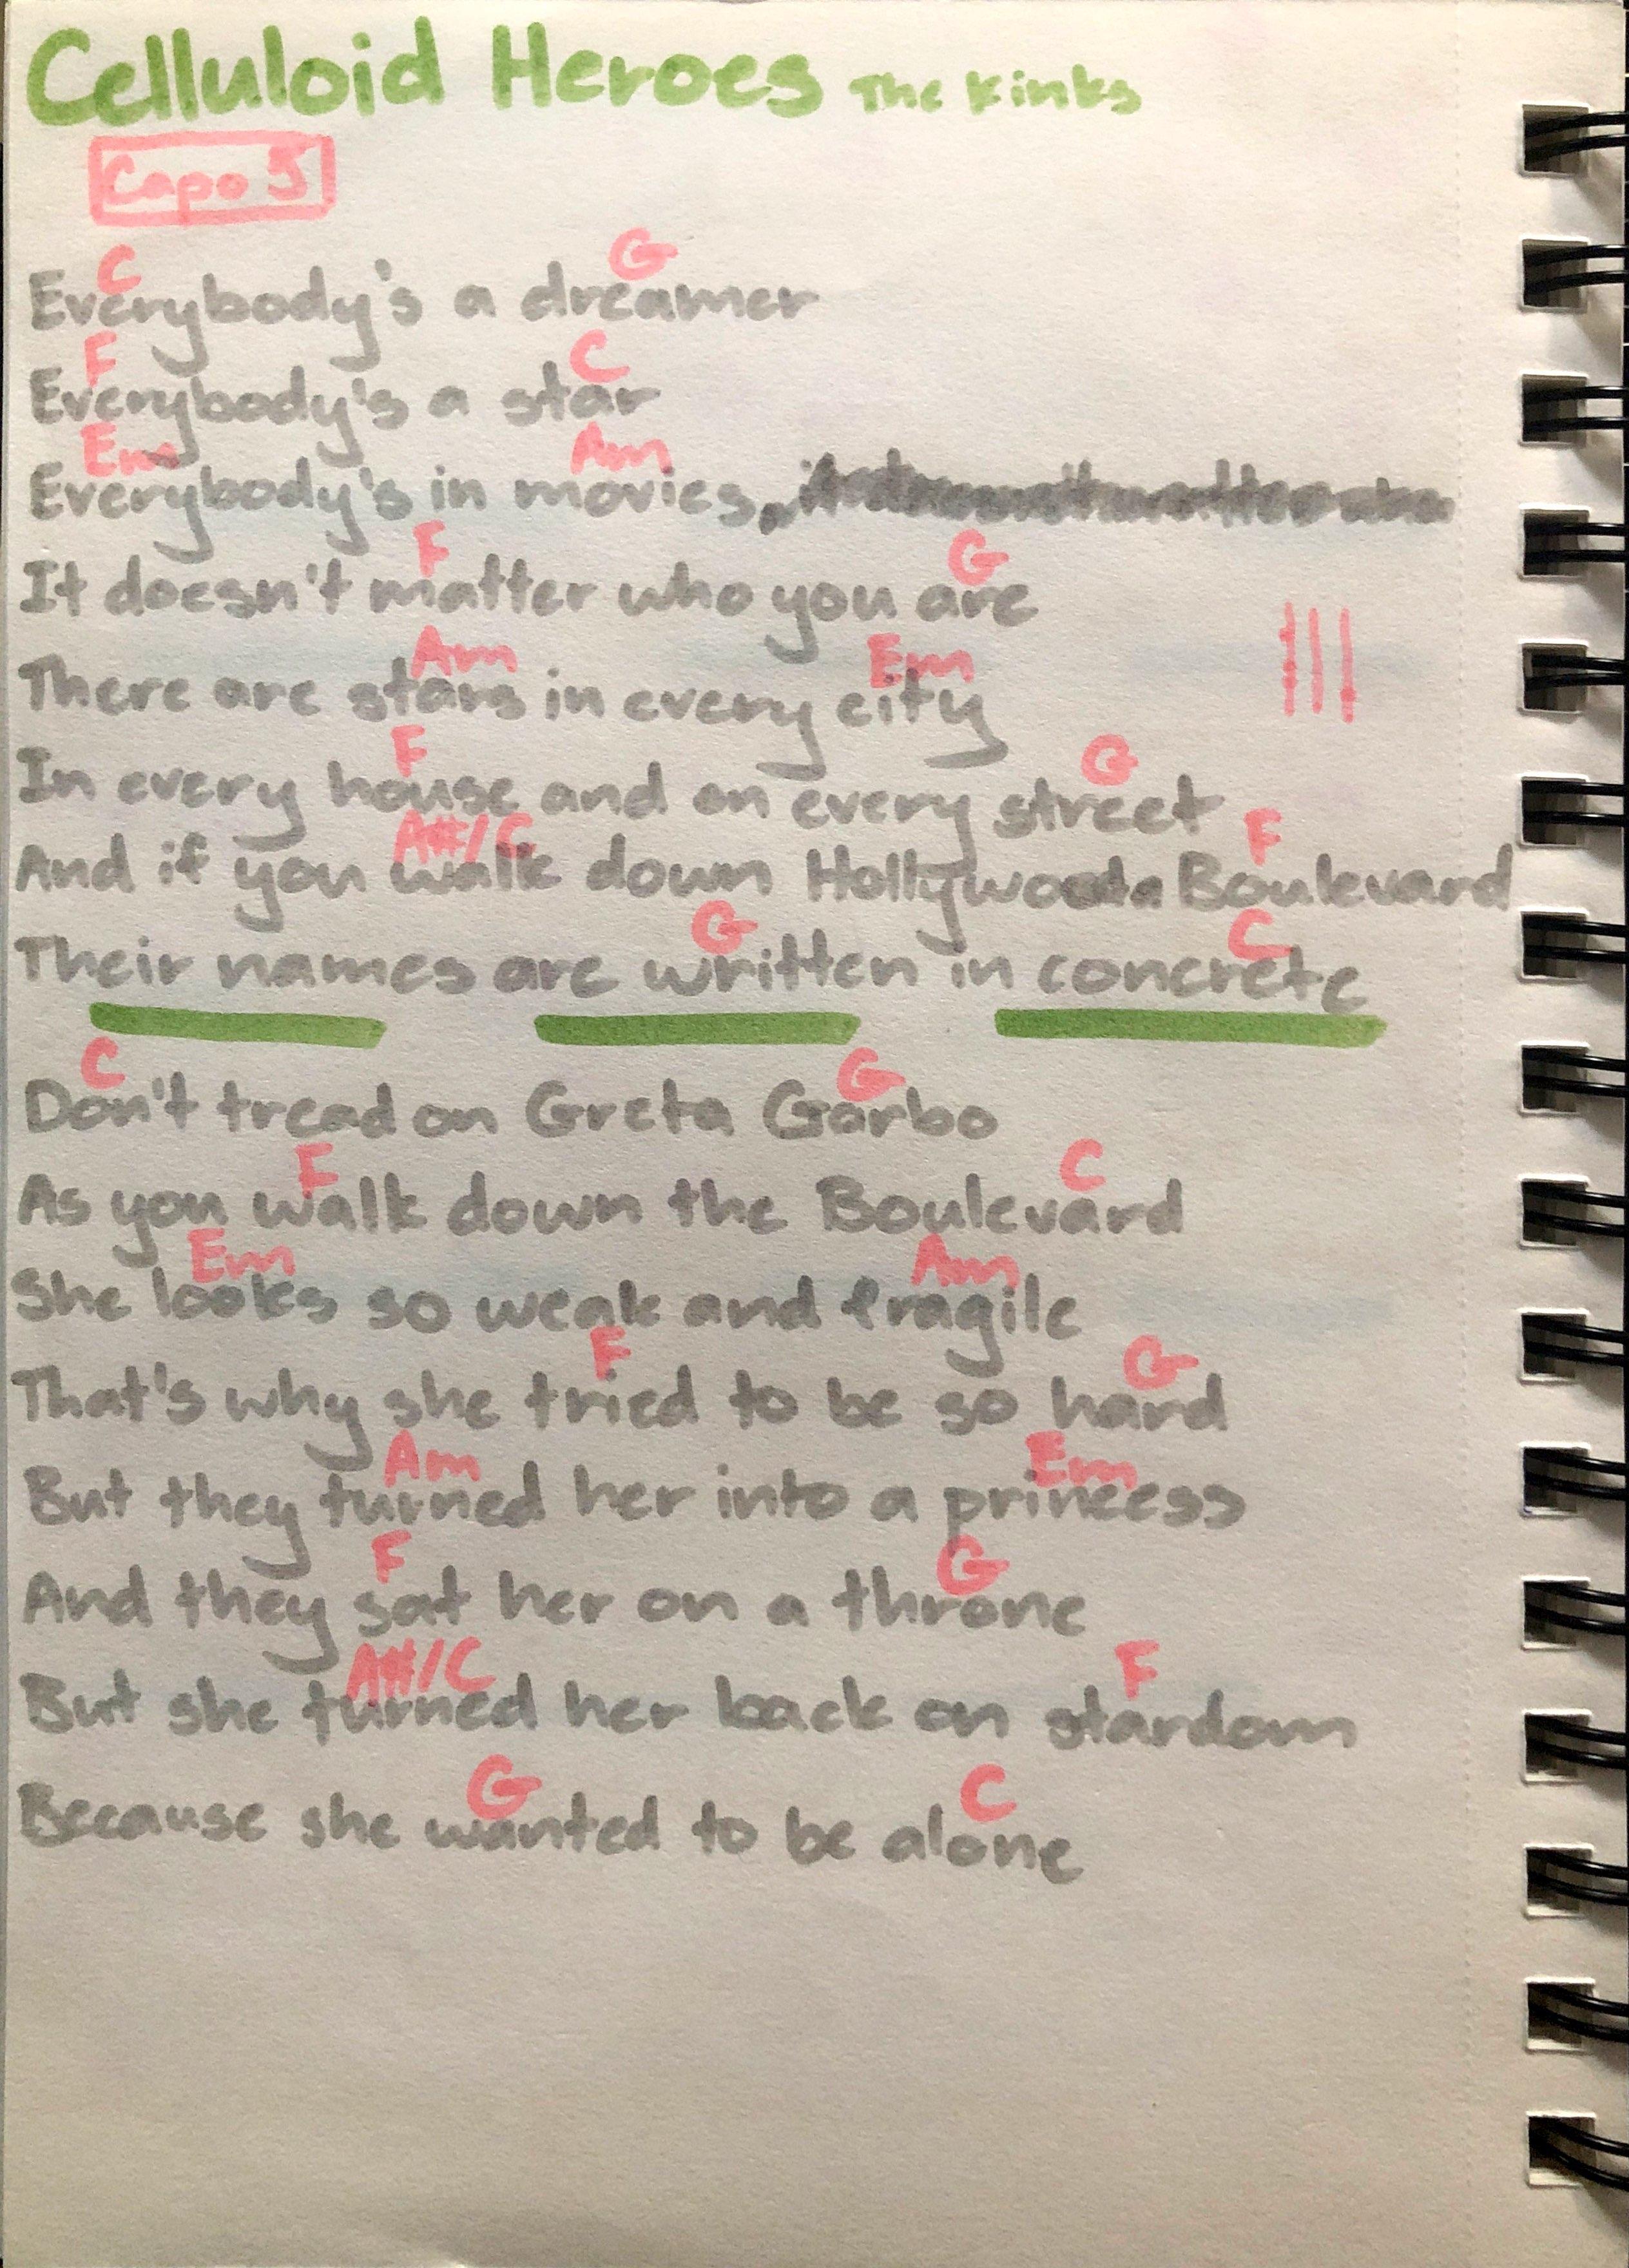 Celluloid Heroes The Kinks
Capo 5
C G
Everybody's a dreamer
F C
Everybody's a star
Em Am
Everybody's in movies,
F G
It doesn't matter who you are
Am Em
There are stars in every city
F G
In every house and on every street
A#/C F
And if you walk down Hollywood Boulevard
G C
Their names are written in concrete
C G
Don't tread on Greta Garbo
F C
As you walk down the Boulevard
Em Am
She looks so weak and fragile
F G
That's why she tried to be so hard
Am Em
But they turned her into a princess
F G
And they sat her on a throne
A#/C F
But she turned her back on stardom
G C
Because she wanted to be alone